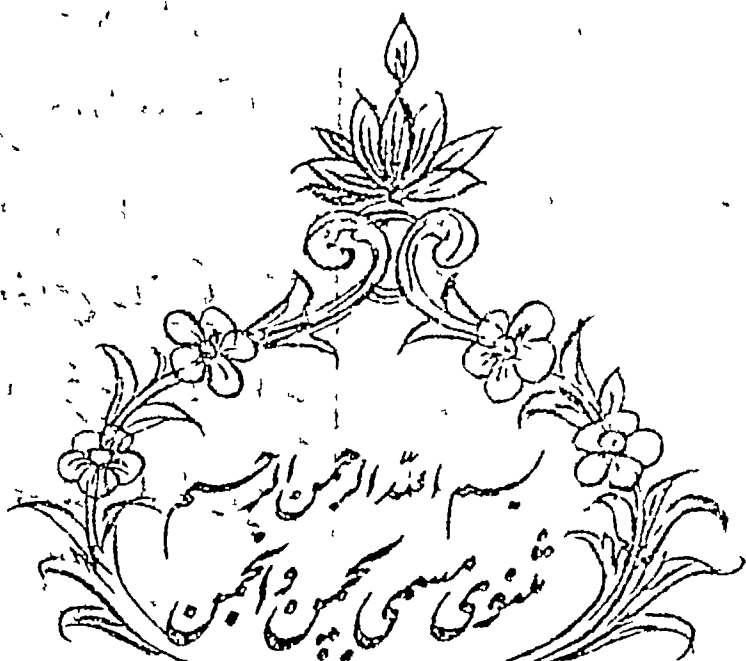 بسم اللہ الرحمن الرحیم
مثنوی مسمی بچمن و انجمن